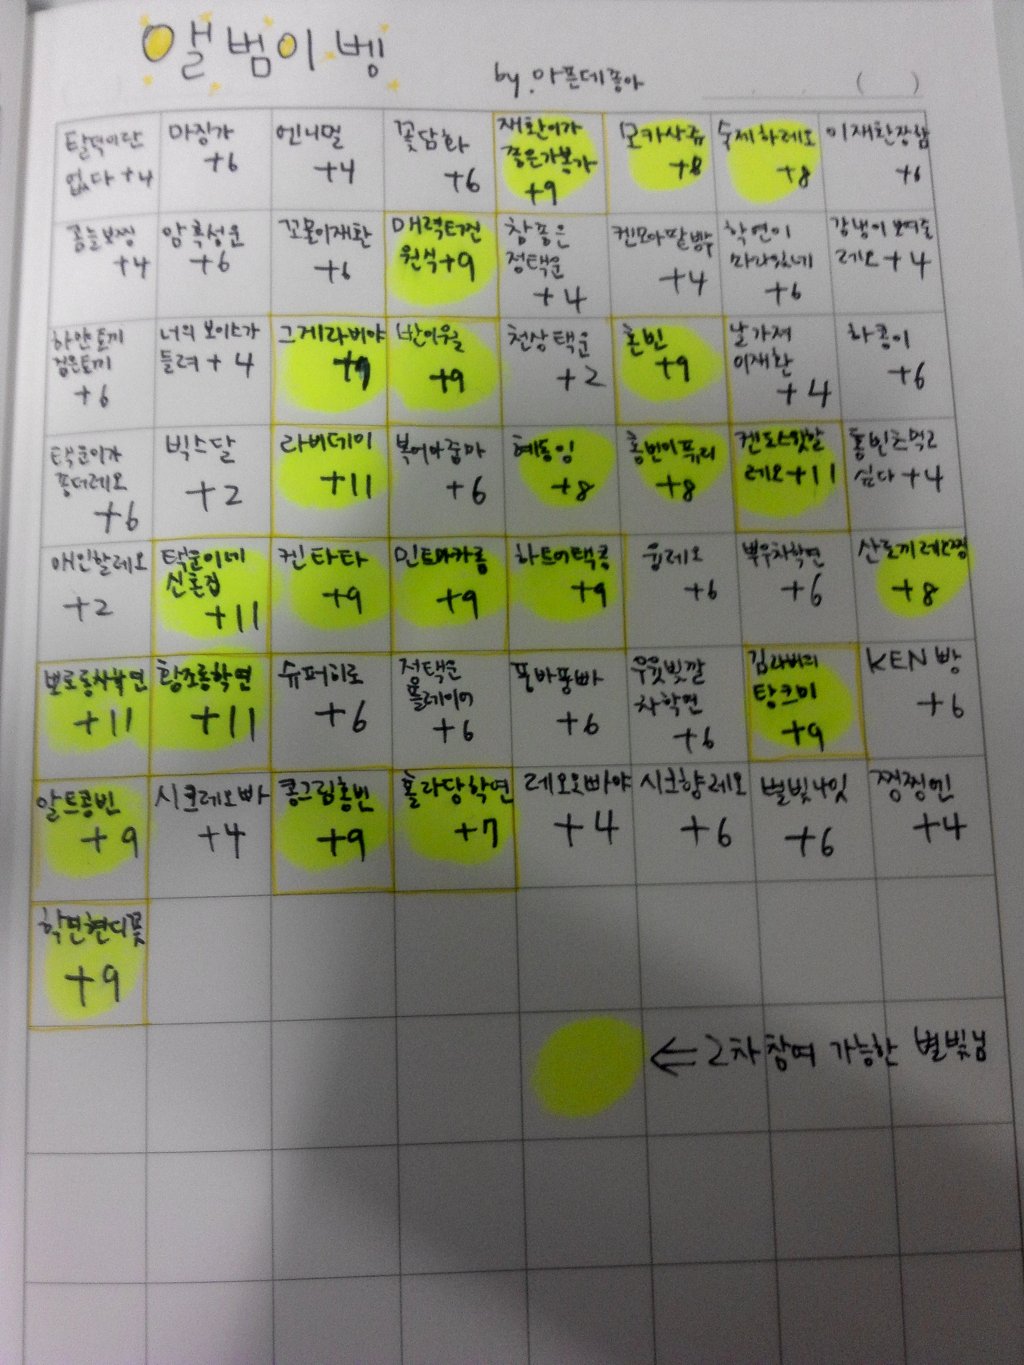 앨범이벵
by. 아픈데좋아 ( )
탈덕이란
없다 +4
마징가
+6
엔니멀
+4
꽃담화
+6
재환이가
좋은가봉가
+9
모카사쥬
+8
숙제하레오
+8
이재환장함
+6
콩늘보찡
+4
암흑성운
+6
꼬몰이재환
+6
매력터진
원식+9
참좋은
정택운
+4
켄모아팥빵
+4
학연이
마라있네
+6
강냉이 보여줄
레오 +4
하얀토끼
검은토끼
+6
너의 보이스가
들려 +4
그게라버야
+9
반이월
+9
천상택운
+2
혼빈
+9
날가져
이재환
+4
하콩이
+6
택운이가
퐁더레오
+6
빅스달
+2
라비데이
+11
복어아줌마
+6
혜동잉
+8
홍빈이퓨리
+8
켄도스윗할
레오+11
홍빈츠먹고
싶다 +4
애인할레오
+2
택운이네
신혼집
+11
켄타타
+9
민트마카롱
+9
하트어택콩
+9
웁레오
+6
뿌우차학연
+6
산토끼레오찡
+8
뽀로롱차학연
+11
황조롱학연
+11
슈퍼히로
+6
정택운
플레이어
+6
폼바퐁빠
+6
우윳빛깔
차학연
+6
김라비의
탕크미
+9
KEN빵
+6
알트콩빈
+9
시크레오빠
+4
콩그림홍빈
+9
홀라당학연
+7
레오오빠야
+4
시크향레오
+6
별빛나잇
+6
쩡쩡엔
+4
학연현디꽃
+9
⇐ 2차참여 가능한 별빛님